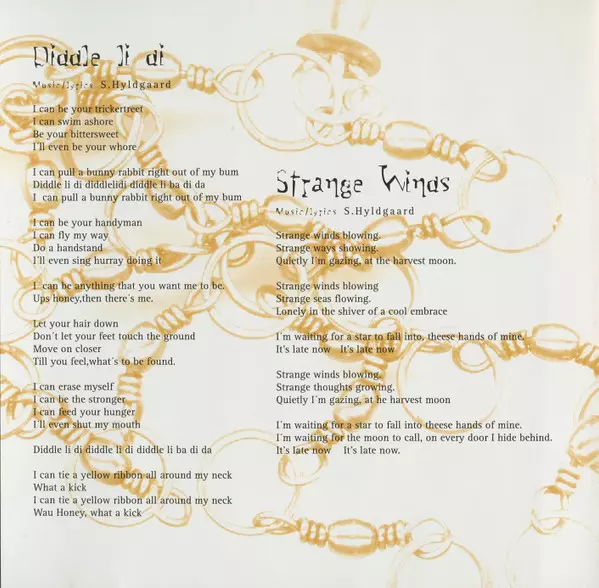 Diddle li di
Music/lyrics S.Hyldgaard
I can be your trickertreet
I can swim ashore
Be your bittersweet
I'll even be your whore
I can pull a bunny rabbit right out of my bum
Diddle li di diddlelidi diddle li ba di da
I can pull a bunny rabbit right out of my bum
I can be your handyman
I can fly my way
Do a handstand
I'll even sing hurray doing it
I can be anything that you want me to be.
Ups honey,then there's me.
Let your hair down
Don't let your feet touch the ground
Move on closer
Till you feel,what's to be found.
I can erase myself
I can be the stronger
I can feed your hunger
I'll even shut my mouth
Diddle li di diddle li di diddle li ba di da
I can tie a yellow ribbon all around my neck
What a kick
I can tie a yellow ribbon all around my neck
Wau Honey, what a kick
Strange Winds
Music/lyrics S.Hyldgaard
Strange winds blowing.
Strange ways showing.
Quietly I'm gazing, at the harvest moon.
Strange winds blowing
Strange seas flowing.
Lonely in the shiver of a cool embrace
I'm waiting for a star to fall into, theese hands of mine.
It's late now It's late now
Strange winds blowing,
Strange thoughts growing.
Quietly I'm gazing, at he harvest moon
I'm waiting for a star to fall into theese hands of mine.
I'm waiting for the moon to call, on every door I hide behind.
It's late now It's late now.